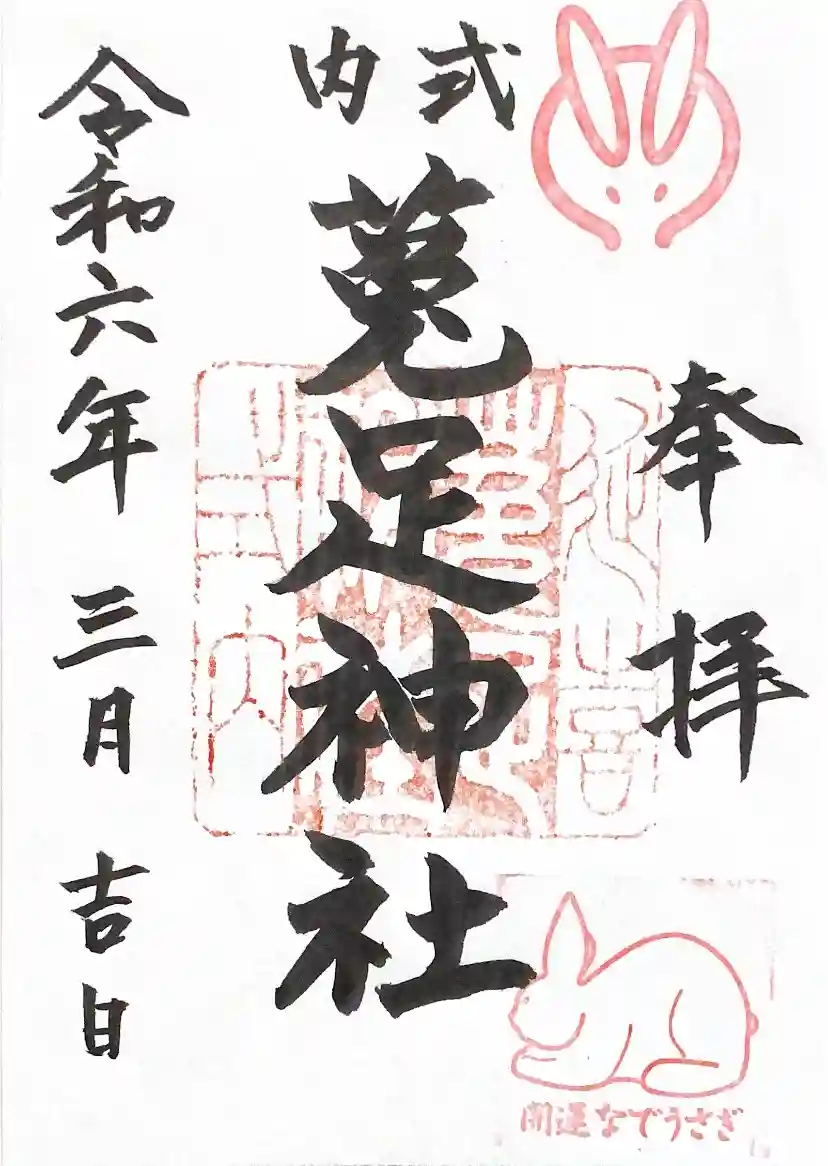 奉拝
式内
菟足神社
令和六年 三月 吉日
開運なでうさぎ